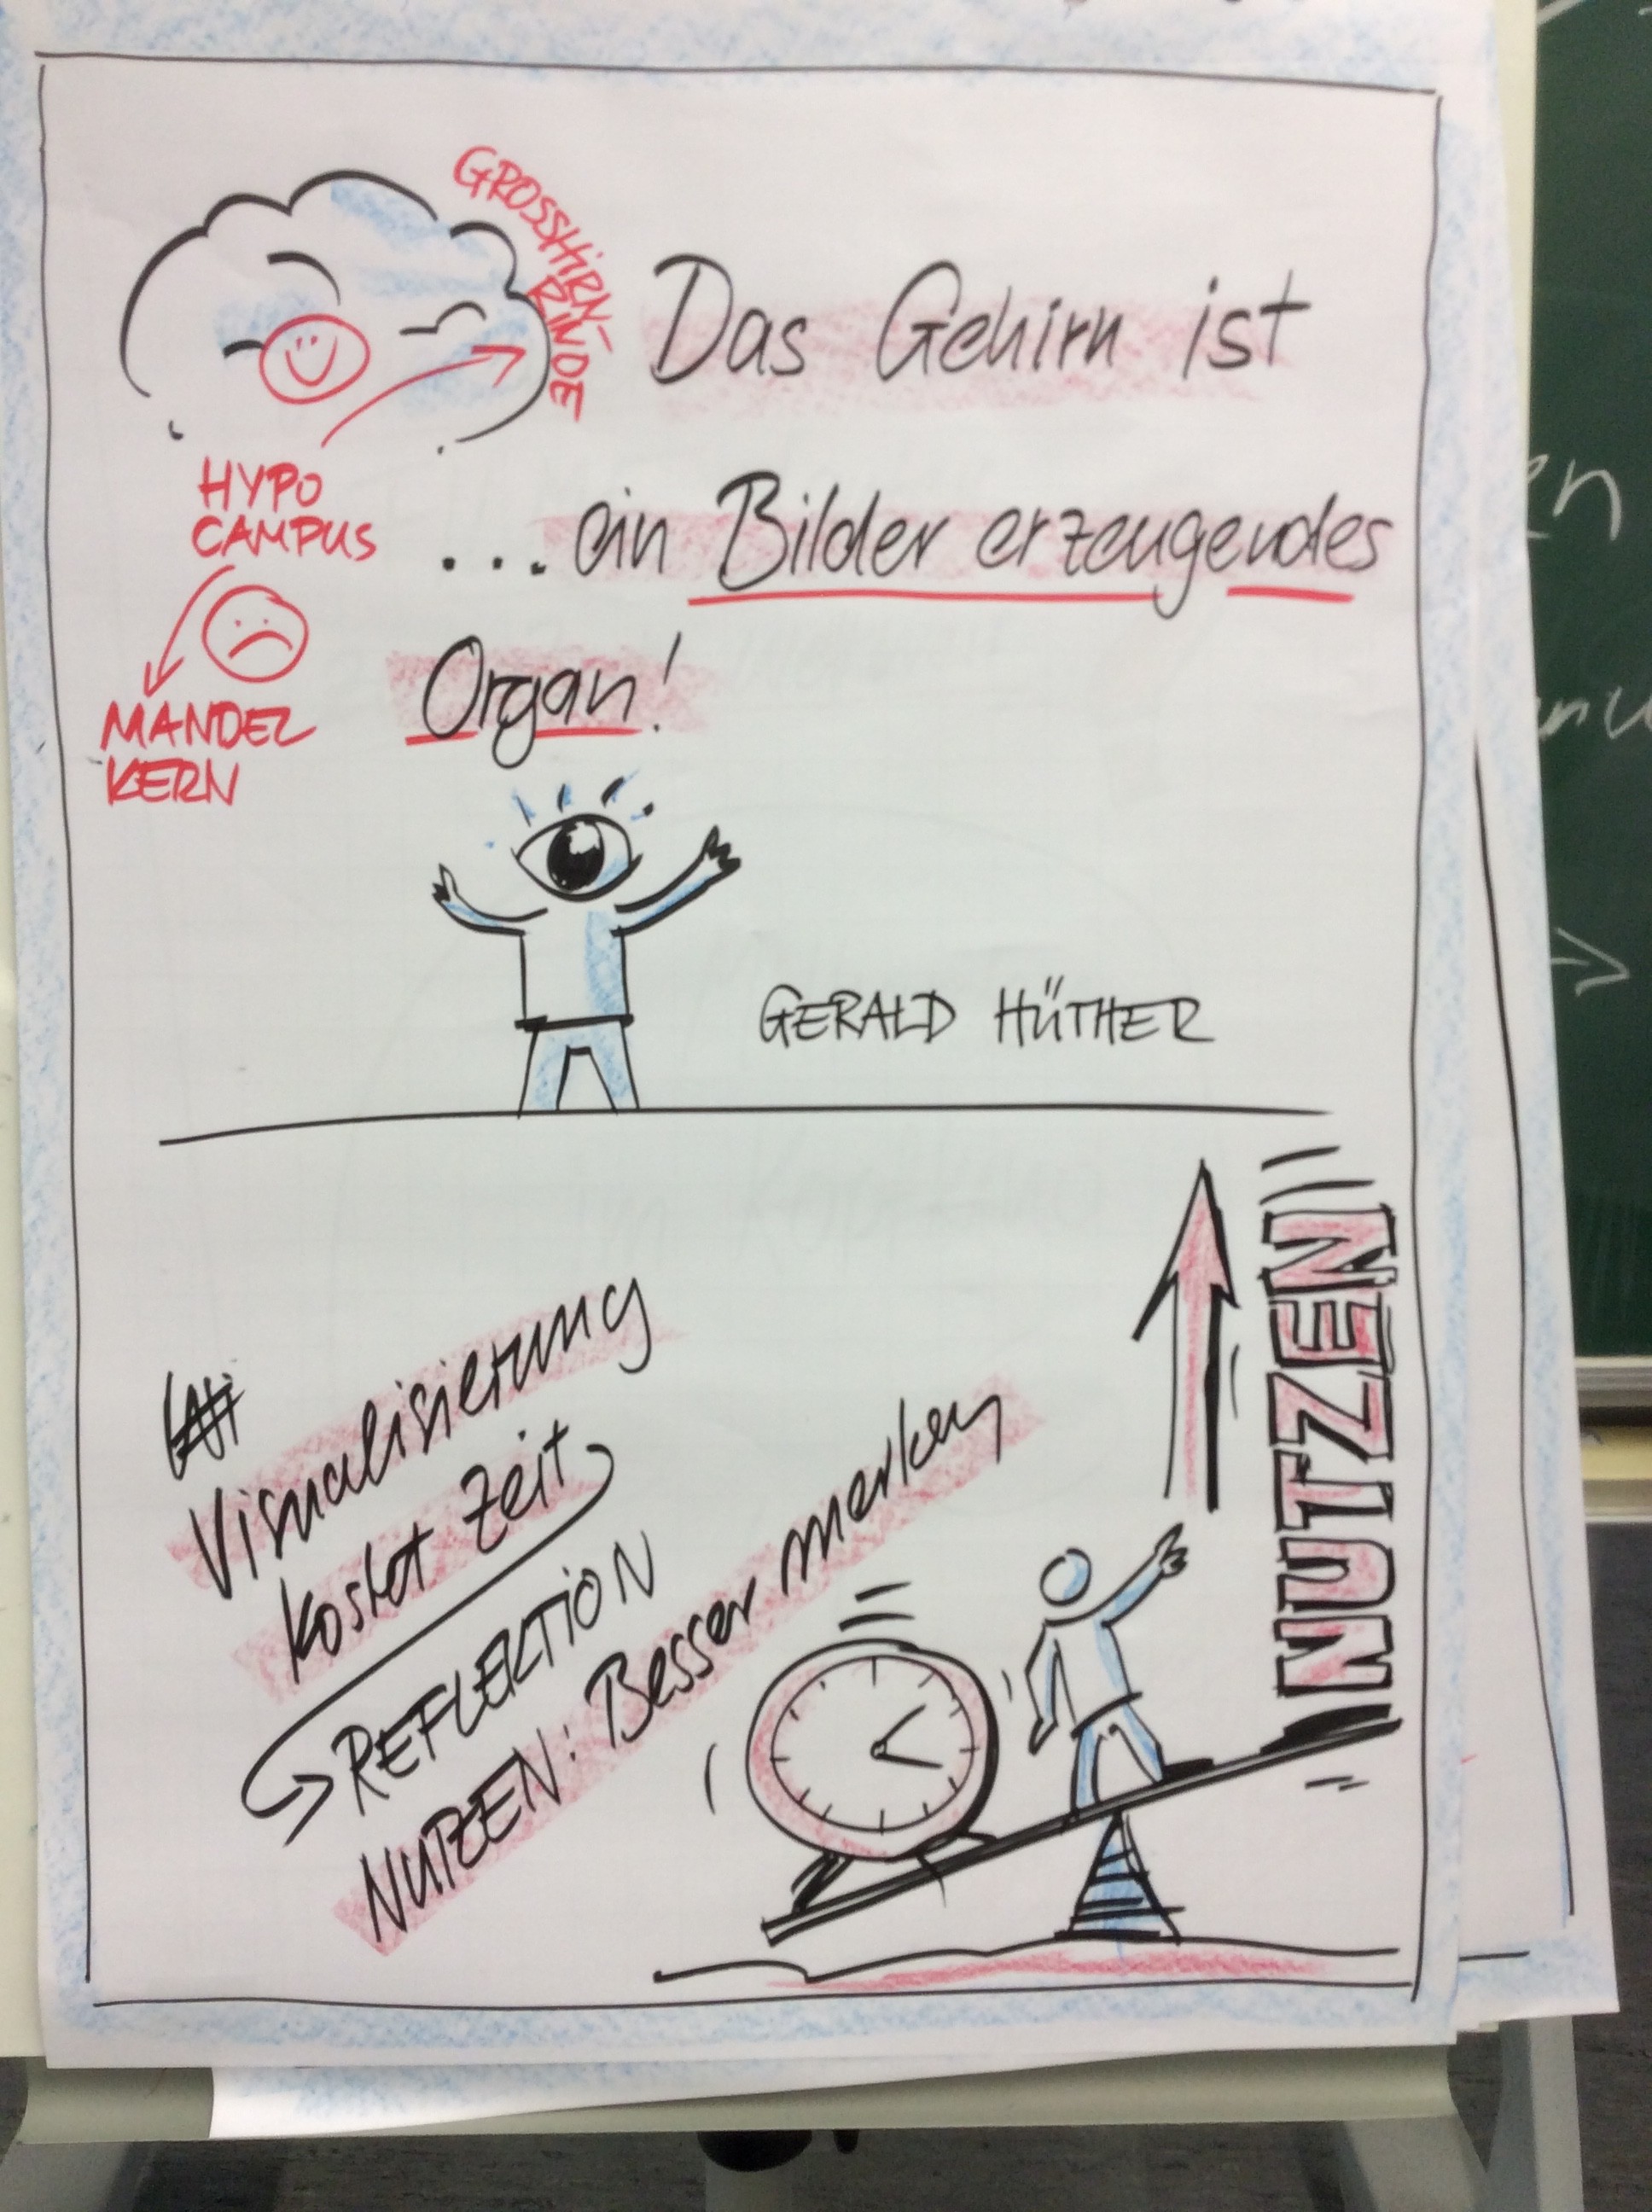 GROSSHIRN-
RINDE
Das Gehirn ist
HYPO
CAMPUS
... ein Bilder erzeugendes
Organ!
MANDEL
KERN
GERALD HÜTHER
NUTZEN
Visualisierung
kostet Zeit
REFLEKTION
NUTZEN: Besser merken
en